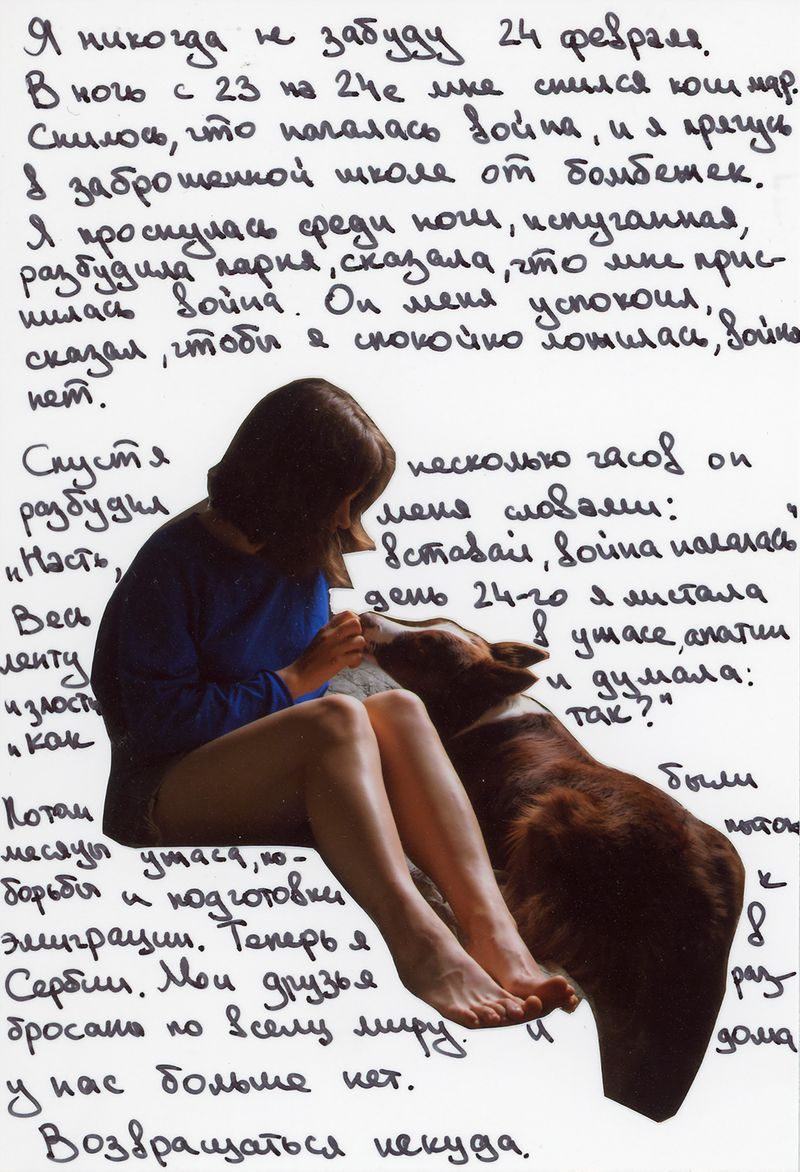 Я никогда не забуду 24 февраля.
В ночь с 23 на 24е мне снился кошмар.
Снилось, что началась война, и я прячусь
в заброшенной школе от бомбежек.
Я проснулась среди ночи, испуганная,
разбудила парня, сказала, что мне прис-
нилась война. Он меня успокоил,
сказал, чтобы я спокойно ложилась, война
нет.
Спустя несколько часов он
разбудил меня словами:
„Насть, вставай, война началась"
Весь день 24-го я листала
ленту в ужасе, апатии
и злости и думала:
„как так?"
Потом были
месяцы ужаса, по- пыток
борьбы и подготовки к
эмиграции. Теперь я в
Сербии. Мои друзья раз-
бросаны по всему миру. И дома
у нас больше нет.
Возвращаться некуда.